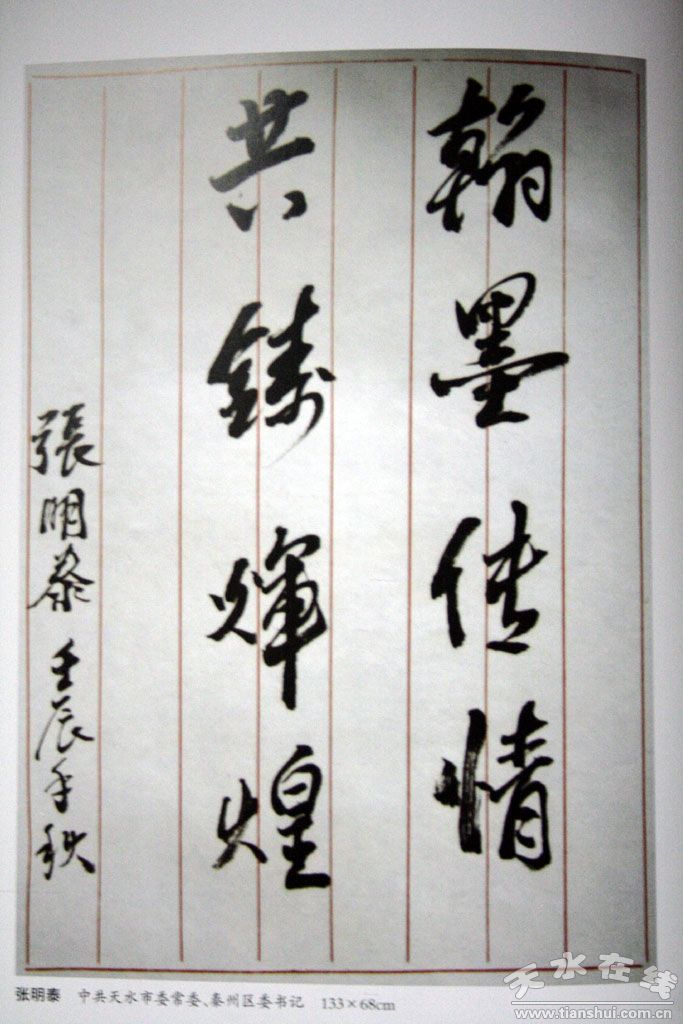 翰墨传情
共鑄輝煌
張明泰 壬辰年秋
张明泰 中共天水市委常委、秦州区委书记 133×68cm
天水在线
www.tianshui.com.cn